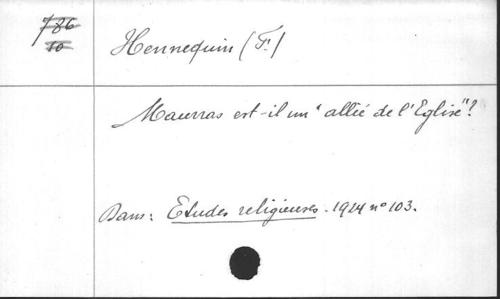 786
10
Hennequin (F.)
Maurras est-il un "allié de l'Eglise"?
Dans: Etudes religieuses. 1924 n° 103.